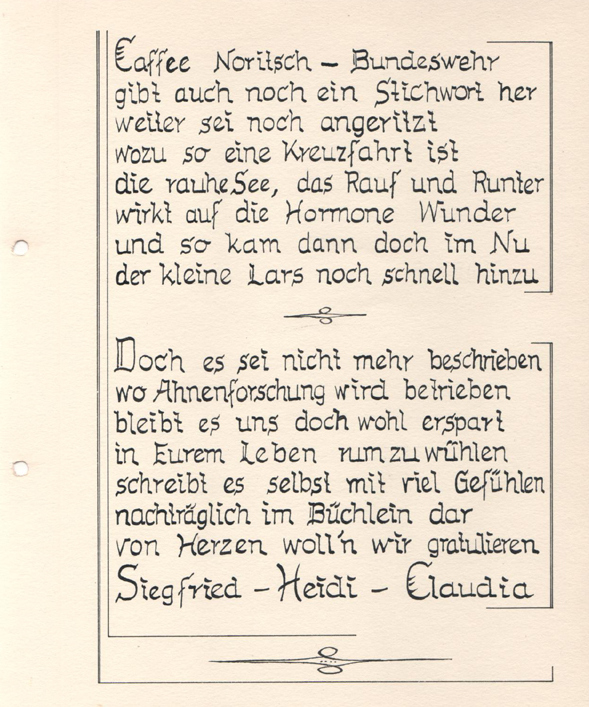 Caffee Noritsch – Bundeswehr
gibt auch noch ein Stichwort her
weiter sei noch angeritzt
wozu so eine Kreuzfahrt ist
die rauhe See, das Rauf und Runter
wirkt auf die Hormone Wunder
und so kam dann doch im Nu
der kleine Lars noch schnell hinzu
Doch es sei nicht mehr beschrieben
wo Ahnenforschung wird betrieben
bleibt es uns doch wohl erspart
in Eurem Leben rumzuwühlen
schreibt es selbst mit viel Gefühlen
nachträglich im Büchlein dar
von Herzen woll'n wir gratulieren
Siegfried – Heidi – Claudia